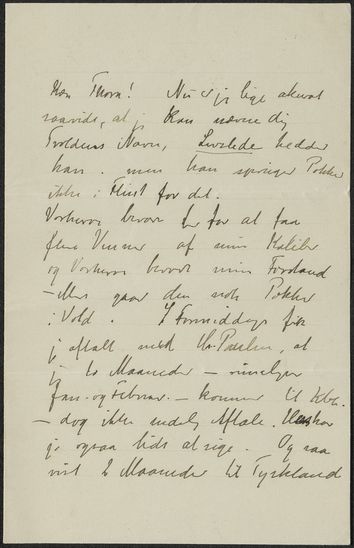 Kære Thora! Nu er jeg lige akurat
saavidt, at jeg kan nævne dig
Troldens Navn, Levelede hedder
han. men han springer Pokker
ikke i Flint for det.
Vorherre bevare for at faa
flere Venner af min Kaliber
og Vorherre bevare min Forstand
– Men gaar den nok Pokker
i Vold. I Formiddags fik
jeg aftalt med Hr. Paulsen, at
jeg to Maaneder – rimeligvis
Jan. og Februar. – kommer til Kbh.
– dog ikke endelig Aftale.
jo ogsaa lidt at sige. Og saa
vist 2 Maaneder til Tyskland